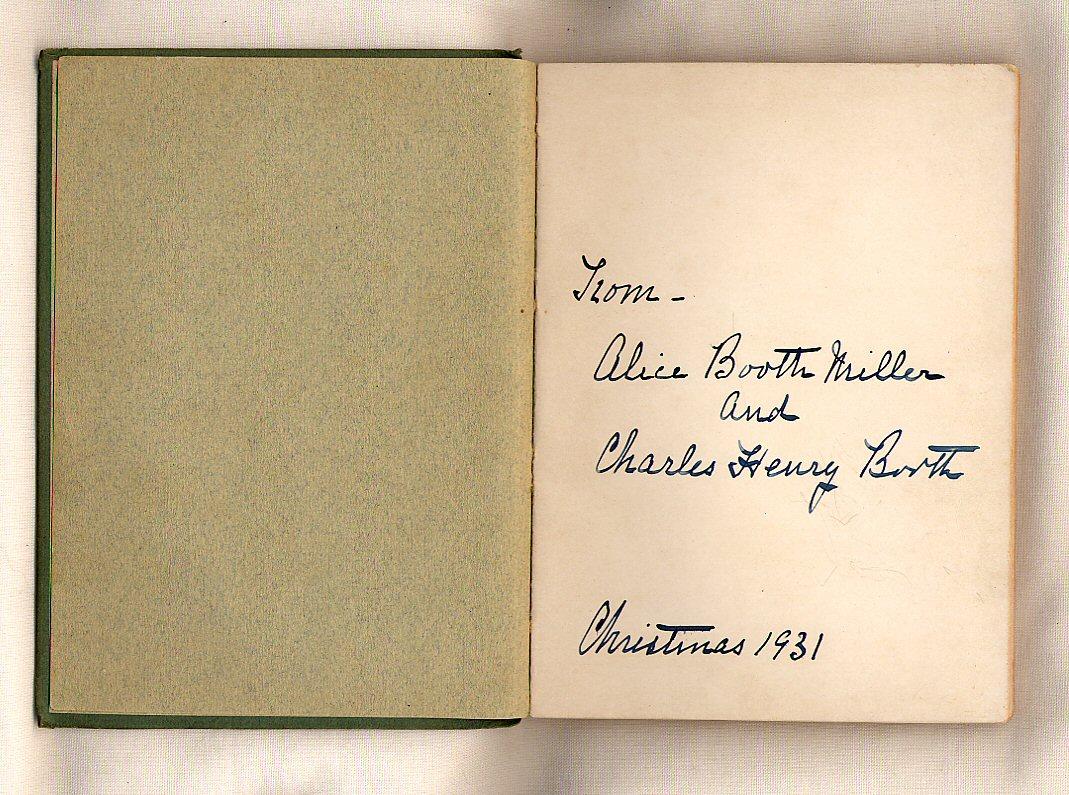 From -
Alice Booth Miller
and
Charles Henry Booth
Christmas 1931